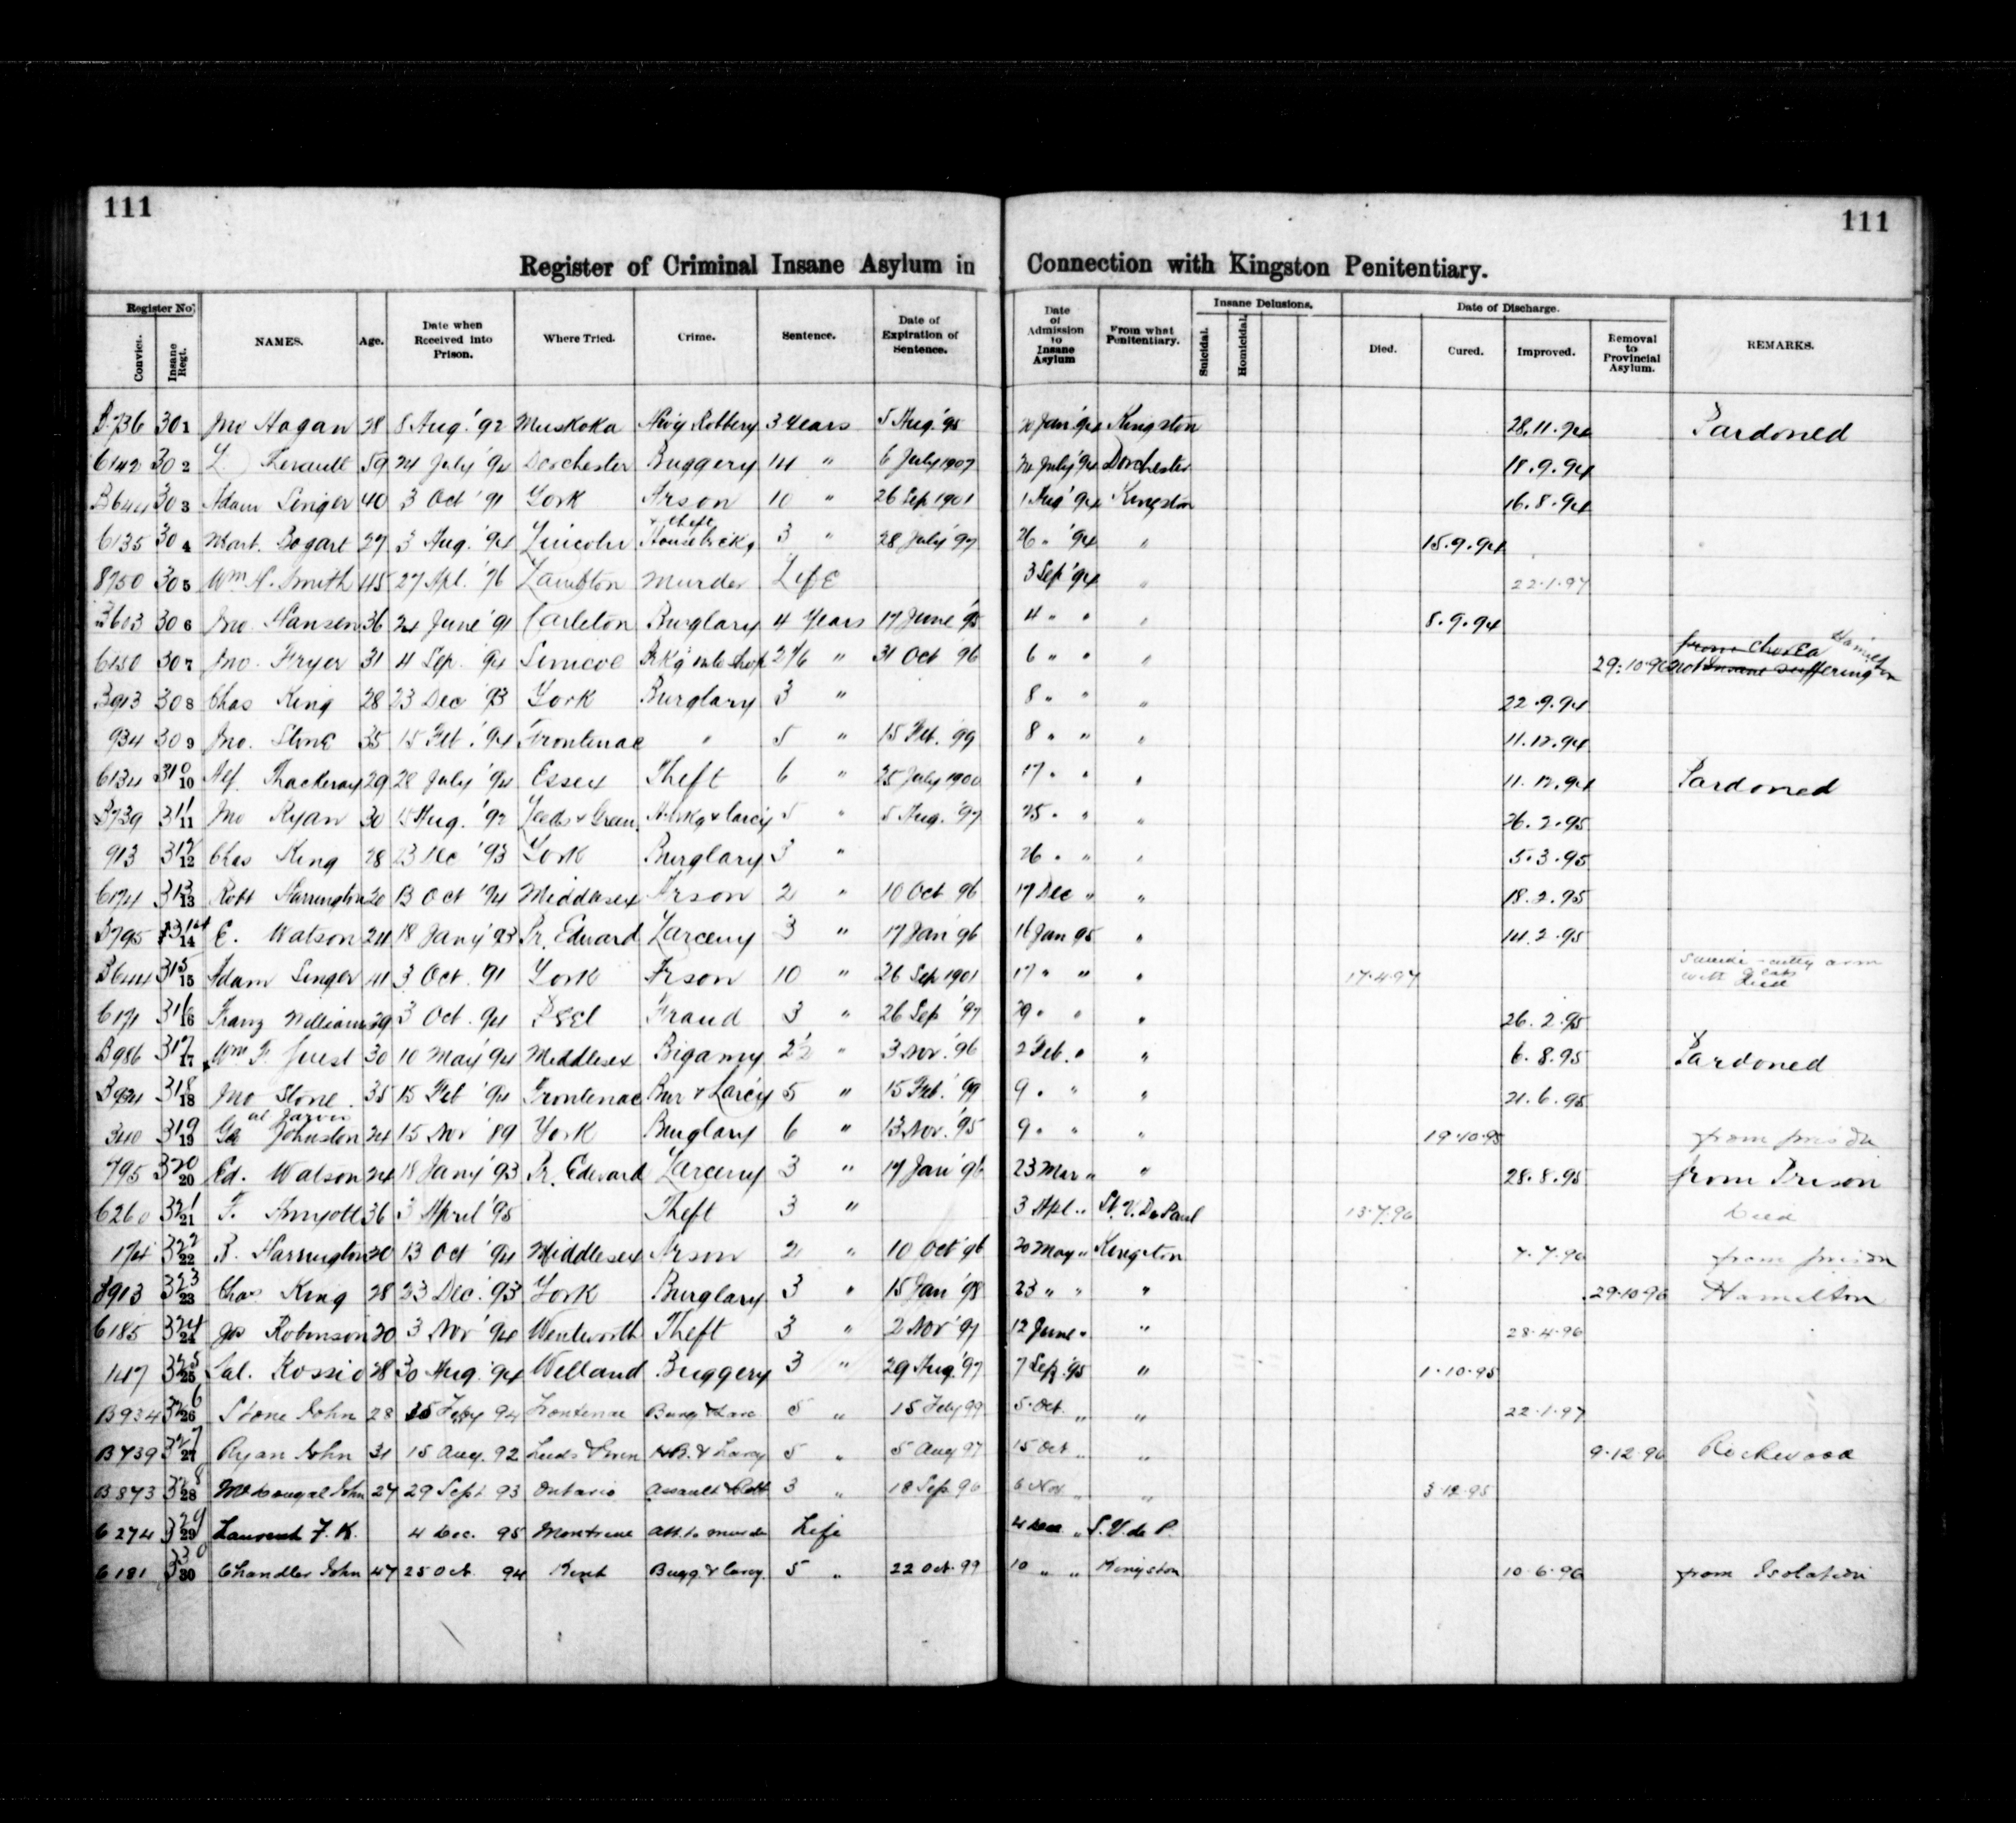 111
111
Register of Criminal Insane Asylum in Connection with Kingston Penitentiary.
Register No. NAMES. Age. Date when Received into Prison. Where Tried. Crime. Sentence. Date of Expiration of Sentence. Date of Admission to Insane Asylum From what Penitentiary. Insane Delusions. Date of Discharge. REMARKS.
Convict. Insane Regt. Suicidal. Homicidal. Died. Cured. Improved. Removal to Provincial Asylum.
B736 301 Jno Hagan 28 8 Aug. '92 Muskoka Robbery 3 Years 5 Aug. '95 Jan '94 Kingston 28.11.94 Pardoned
6142 302 L. 59 24 July '94 Dorchester Buggery 14 " 6 July 1907 July '94 Dorchester 18.9.94
B644 303 Adam Singer 40 3 Oct '91 York Arson 10 " 26 Sep 1901 1 Aug '94 Kingston 16.8.94
6135 304 Bogart 27 3 Aug. '94 Lincoln & theft 3 " 28 July '97 26 " '94 " 15.9.94
8750 305 Wm H. Smith 45 27 Apl. '76 Lambton Murder Life 3 Sep '94 " 22.1.97
B603 306 Jno. Hansen 36 24 June '91 Carleton Burglary 4 Years 17 June '95 4 " " " 8.9.94
6150 307 Jno. Fryer 31 4 Sep. '94 Simcoe Bkg into Shop 2 1/6 " 31 Oct 96 6 " " " 29.10.96 from Chorea Hamilton
not Insane suffering
B913 308 Chas King 28 23 Dec '93 York Burglary 3 " 8 " " " 22.9.94
934 309 Jno. Stone 35 15 Feb. '94 Frontenac " 5 " 15 Feb. '99 8 " " " 11.12.94
6134 310 Alf. Thackeray 29 28 July '94 Essex Theft 6 " 25 July 1900 17 " " " 11.12.94 Pardoned
B739 311 Jno Ryan 30 15 Aug. '92 Leeds & Gren. H. bkg & larc'y 5 " 5 Aug. '97 25 " " " 26.2.95
913 312 Chas King 28 23 Dec '93 York Burglary 3 " 26 " " " 5.3.95
6174 313 Robt Harrington 20 13 Oct '94 Middlesex Arson 2 " 10 Oct 96 17 Dec " " 18.2.95
B795 314 E. Watson 24 18 Jany '93 Pr. Edward Larceny 3 " 17 Jan '96 16 Jan 95 " 14.2.95
B644 315 Adam Singer 41 3 Oct. '91 York Arson 10 " 26 Sep 1901 17 " " " 17.4.97 arm
with
6171 316 Franz Williams 29 3 Oct. 94 Peel Fraud 3 " 26 Sep '97 29 " " " 26.2.95
B986 317 Wm F. Juest 30 10 May '94 Middlesex Bigamy 2½ " 3 Nov. '96 2 Feb. " " 6.8.95 Pardoned
B934 318 Jno Stone 35 15 Feb '94 Frontenac Bur & Larc'y 5 " 15 Feb. '99 9 " " " 21.6.95
al Jarvis
340 319 Johnston 24 15 Nov '89 York Burglary 6 " 13 Nov. '95 9 " " " 19.10.95 from prison
795 320 Ed. Watson 24 18 Jany '93 Pr. Edward Larceny 3 " 17 Jan '96 23 Mar " " 28.8.95 from Prison
6260 321 F. Amyott 36 3 April '95 Theft 3 " 3 Apl. " St. V. De Paul 13.7.96 Died
174 322 R. Harrington 20 13 Oct '94 Middlesex Arson 2 " 10 Oct '96 20 May " Kingston 7.7.96 from prison
B913 323 Chas King 28 23 Dec. '93 York Burglary 3 " 15 Jan '98 23 " " " 29.10.96 Hamilton
6185 324 Jos Robinson 20 3 Nov '94 Wentworth Theft 3 " 2 Nov '97 12 June " " 28.4.96
147 325 Sal. Rossio 28 30 Aug. '94 Welland Buggery 3 " 29 Aug. '97 7 Sep. '95 " 1.10.95
B934 326 Stone John 28 15 Feby 94 Frontenac Burg & Larc 5 " 15 Feby 99 5 Oct. " " 22.1.97
B739 327 Ryan John 31 15 Aug. 92 Leeds & Gren H.B. & Larcy 5 " 5 Aug 97 15 Oct " " 9.12.96 Rockwood
B873 328 McDougal John 27 29 Sept 93 Ontario Assault & Robb 3 " 18 Sep. 96 6 Nov " " 3.12.95
6274 329 Laurent F. K. 4 Dec. 95 Montreal Att. to murder Life 4 Dec " S.V. de P.
6181 330 Chandler John 47 25 Oct. 94 Kent Bugg. & Larcy. 5 " 22 Oct. 99 10 " " Kingston 10.6.96 from Isolation